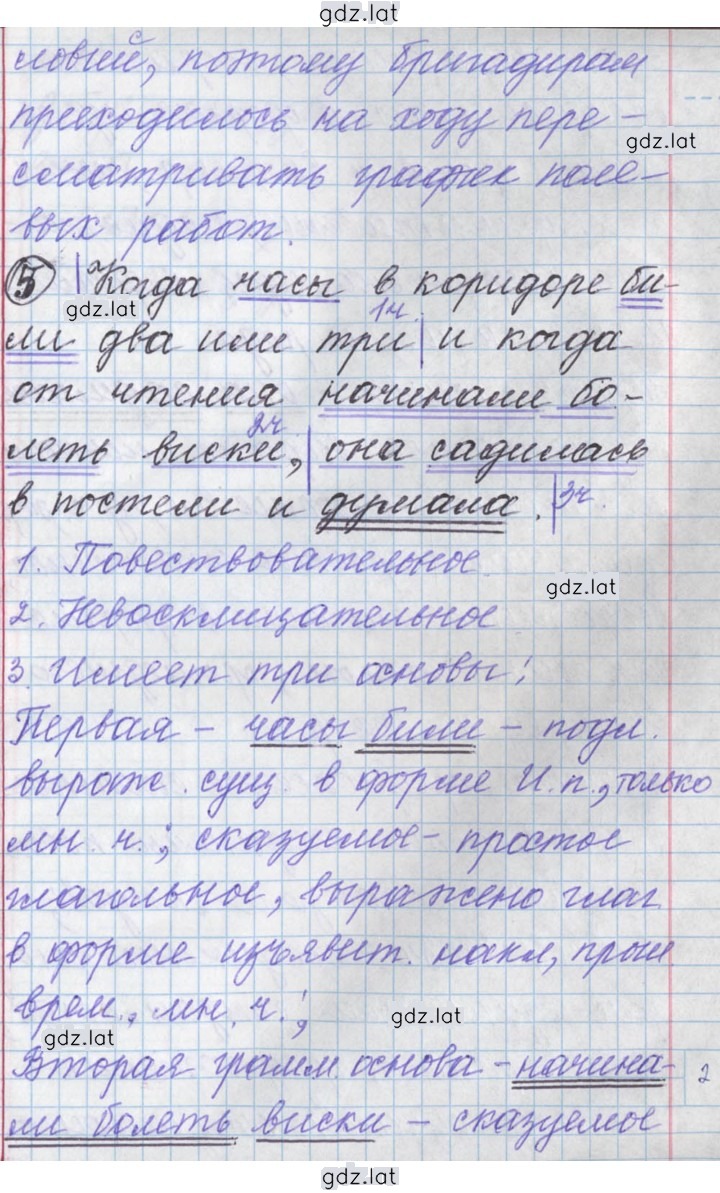 gdz.lat
ловый, поэтому бригадирам
приходилось на ходу пере-
gdz.lat
сматривать график поле-
вых работ.
5 Когда часы в коридоре би-
gdz.lat
1ч.
ли два или три | и когда
от чтения начинали бо-
2ч.
леть виски, | она садилась
в постели и думала. | 3ч.
1. Повествовательное
gdz.lat
2. Невосклицательное
3. Имеет три основы:
Первая – часы били – подл.
выраж. сущ. в форме И.п., только
мн. ч.; сказуемое – простое
глагольное, выражено глаг.
в форме изъявит. накл., прош.
врем., мн. ч.;
gdz.lat
gdz.lat
Вторая грамм. основа – начина-
2
ли болеть виски – сказуемое
gdz.lat